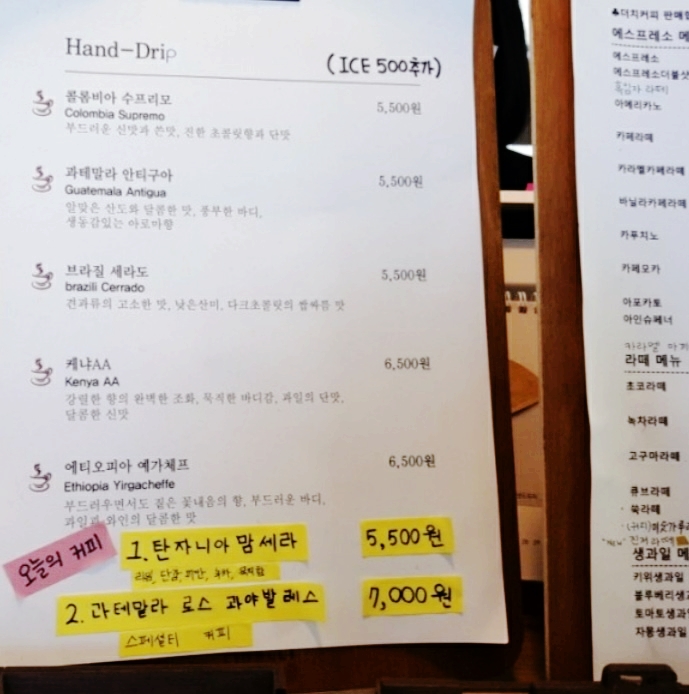 Hand-Drip
(ICE 500추가)
콜롬비아 수프리모
Colombia Supremo
5,500원
부드러운 신맛과 쓴맛, 진한 초콜릿향과 단맛
과테말라 안티구아
Guatemala Antigua
5,500원
알맞은 산도와 달콤한 맛, 풍부한 바디,
생동감있는 아로마향
브라질 세라도
brazili Cerrado
5,500원
견과류의 고소한 맛, 낮은산미, 다크초콜릿의 쌉싸름 맛
케냐AA
Kenya AA
6,500원
강렬한 향의 완벽한 조화, 묵직한 바디감, 과일의 단맛,
달콤한 신맛
에티오피아 예가체프
Ethiopia Yirgacheffe
6,500원
부드러우면서도 짙은 꽃내음의 향, 부드러운 바디,
과일과 와인의 달콤한 맛
오늘의 커피
1. 탄자니아 맘세라
5,500원
2. 과테말라 로스 과야발레스
7,000원
스페셜티 커피
♣더치커피 판매
에스프레소 메
에스프레소
에스프레소더블샷
흑임자 라떼
아메리카노
카페라떼
카라멜카페라떼
바닐라카페라떼
카푸치노
카페모카
아포카토
아인슈페너
라떼 메뉴
초코라떼
녹차라떼
고구마라떼
큐브라떼
쑥라떼
생과일 메
키위생과일
블루베리생
토마토생과
자몽생과일